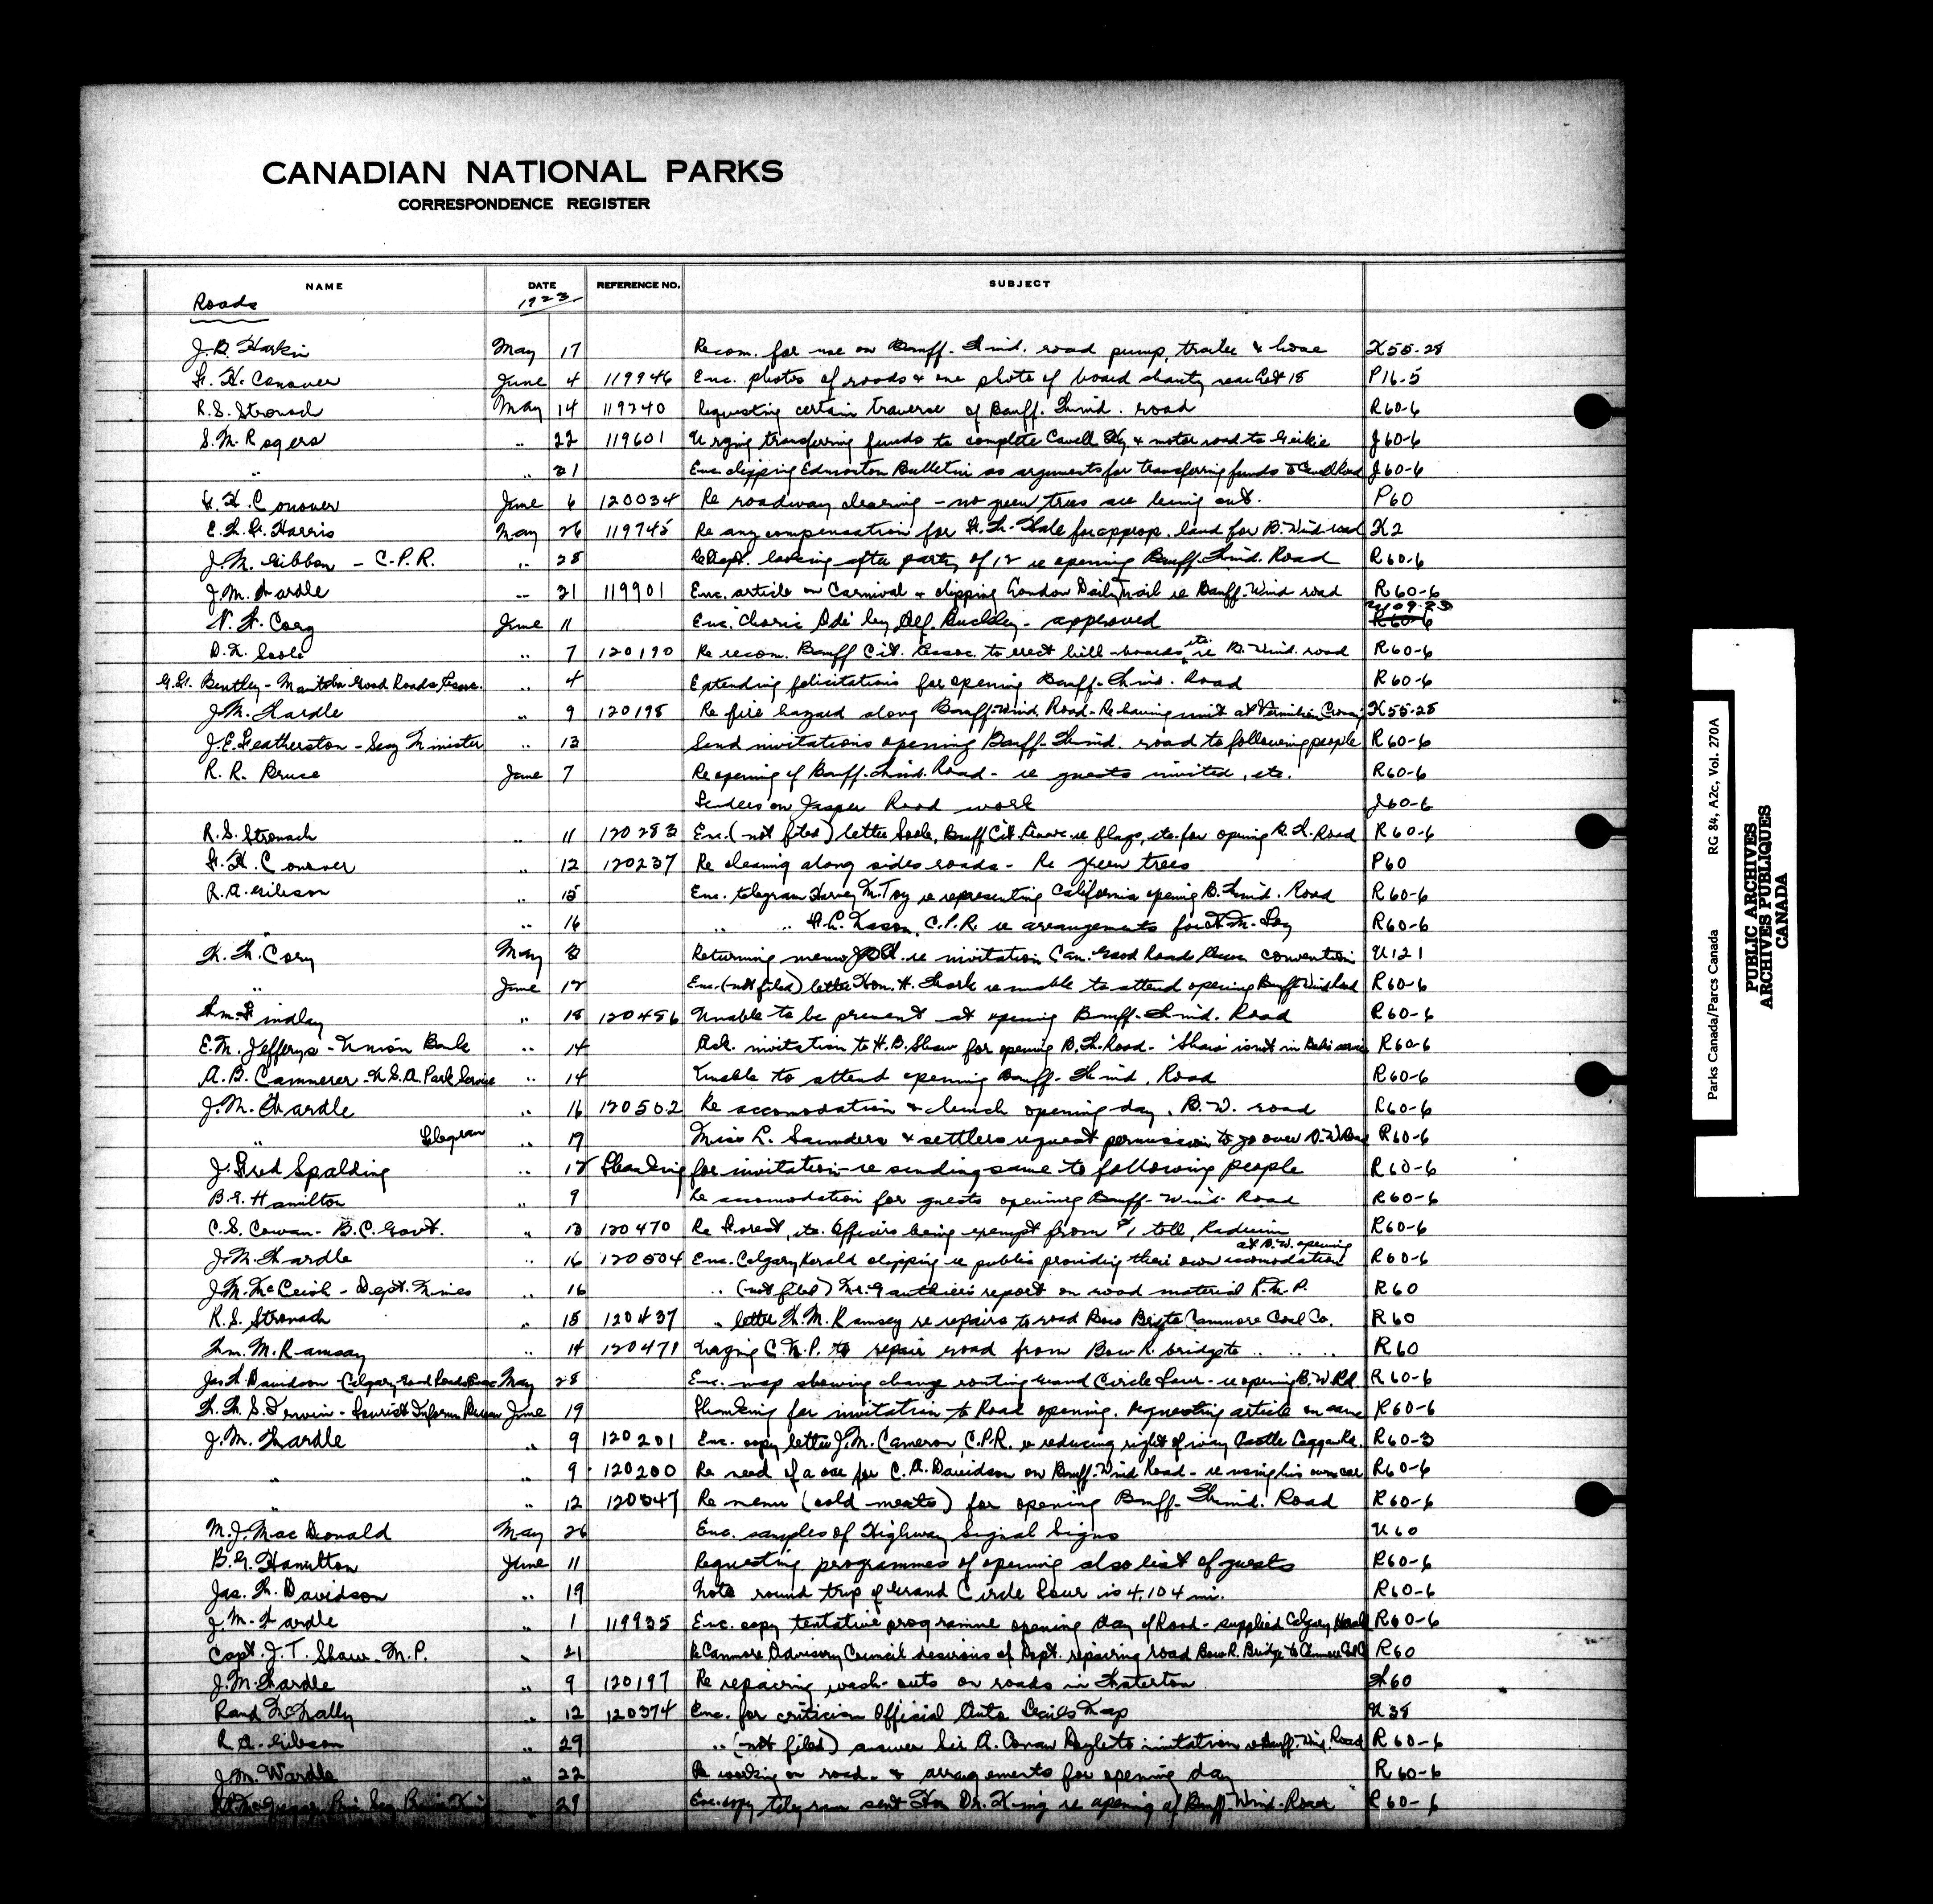 CANADIAN NATIONAL PARKS
CORRESPONDENCE REGISTER
NAME DATE REFERENCE NO. SUBJECT
Roads 1923
J.B. Harkin May 17 Recom. for use on Banff-Wind. road pump, trailer & hose W55-28
W. H. Conover June 4 119946 Enc. photos of roads & one photo of board shanty near 18 P16-5
R.S. Stronach May 14 119240 Requesting certain traverse of Banff-Wind. road R60-6
S.M. Rogers " 22 119601 Urging transferring funds to complete Cavell Hy & motor road to Geikie J60-6
" 21 Enc. clipping Edmonton Bulletin as arguments for transferring funds to Cavell Road J60-6
W. H. Conover June 6 120034 Re roadway clearing - no green trees are being cut. P60
E. Harris May 26 119745 Re any compensation for approp. land for B. Wind. road K2
J.M. Gibbon - C.P.R. " 28 looking after party of 12 re opening Banff-Wind. Road R60-6
J.M. Wardle " 21 119901 Enc. article on Carnival & clipping London Daily Mail re Banff-Wind road R60-6
W. W. Cory June 11 Enc. 'Choric Ode' by Alf. Buckley - approved U109-23 R60-6
" 7 120190 Re recom. Banff Cit. Assoc. to erect bill-boards etc. re B. Wind. road R60-6
Bentley - Manitoba Good Roads Assoc. " 4 Extending felicitations for opening Banff-Wind. Road R60-6
J.M. Wardle " 9 120198 Re fire hazard along Banff-Wind. Road - Re having unit at Vermilion Crossing K55-28
J.E. Featherston - Secy Minister " 13 Send invitations opening Banff-Wind. road to following people R60-6
R. R. Bruce June 7 Re opening of Banff-Wind. Road - re guests invited, etc. R60-6
Tenders on Jasper Road work J60-6
R.S. Stronach " 11 120283 Enc. (not filed) letter Soole, Banff Cit. Assoc. re flags, etc. for opening B. W. Road R60-6
W. H. Conover " 12 120237 Re clearing along sides roads - Re green trees P60
R.A. Gibson " 15 Enc. telegram Harvey M. Toy re representing California opening B. Wind. Road R60-6
" 16 " " C.P.R. re arrangements for H. M. Toy R60-6
W. W. Cory May 8 Returning memo re invitation Can. Good Roads Assoc. convention U121
" June 12 Enc. (not filed) letter Hon. re unable to attend opening Banff Wind Road R60-6
Wm. Findlay " 18 120486 Unable to be present at opening Banff-Wind. Road R60-6
E.M. Jefferys - Union Bank " 14 Ack. invitation to H.B. Shaw for opening B. W. Road - 'Shaw' is not in Bank's service R60-6
A.B. Cammerer - U.S.A. Park Service " 14 Unable to attend opening Banff-Wind. Road R60-6
J.M. Wardle " 16 120502 Re accomodation & lunch opening day, B.W. road R60-6
" Telegram " 19 Miss L. Saunders & settlers request permission to go over B.W. Road R60-6
J. Fred Spalding " 12 Thanking for invitation - re sending same to following people R60-6
B.G. Hamilton " 9 Re accomodation for guests opening Banff-Wind. Road R60-6
C.S. Cowan - B.C. Govt. " 13 120470 Re Forest, etc. Officers being exempt from $1 toll, Radium R60-6
J.M. Wardle " 16 120504 Enc. Calgary Herald clipping re public providing their own accomodation at B.W. opening R60-6
J.M. McLeish - Dept. Mines " 16 " (not filed) Mr. Gauthier's report on road material R.M.P. R60
R.S. Stronach " 15 120437 " letter W. M. Ramsay re repairs to road Bow Br. to Canmore Coal Co. R60
Wm. M. Ramsay " 14 120471 Urging C.N.P. to repair road from Bow R. bridge to " " " R60
Jas. W. Davidson - Calgary Good Roads Assoc. May 28 Enc. map showing change routing Grand Circle Tour - re opening B.W. Rd. R60-6
Irwin - Tourist Inform. Bureau June 19 Thanking for invitation to Road opening. Requesting article on same R60-6
J.M. Wardle " 9 120201 Enc. copy letter J.M. Cameron, C.P.R. re reducing right of way Castle Laggan Rd. R60-3
" " 9 120200 Re need of a car for C. A. Davidson on Banff-Wind Road - re using his own car R60-6
" " 12 120347 Re menu (cold meats) for opening Banff-Wind. Road R60-6
M.J. MacDonald May 26 Enc. samples of Highway Signal Signs U60
B.G. Hamilton June 11 Requesting programmes of opening also list of guests R60-6
Jas. W. Davidson " 19 Note round trip of Grand Circle Tour is 4,104 mi. R60-6
J.M. Wardle " 1 119935 Enc. copy tentative programme opening day of Road - supplied Calgary Herald R60-6
Capt. J.T. Shaw - M.P. " 21 Re Canmore Advisory Council desirous of Dept. repairing road Bow R. Bridge to Canmore R60
J.M. Wardle " 9 120197 Re repairing wash-outs on roads in Waterton W60
Rand McNally " 12 120374 Enc. for criticism Official Auto Trails Map U38
R.A. Gibson " 29 " (not filed) answer Sir A. Conan Doyle to invitation re Banff-Wind. Road R60-6
J.M. Wardle " 22 Re working on road - & arrangements for opening day R60-6
" 29 Enc. copy telegram sent Hon Dr. King re opening of Banff-Wind-Road R60-6
Parks Canada/Parcs Canada RG 84, A2c, Vol. 270A
PUBLIC ARCHIVES
ARCHIVES PUBLIQUES
CANADA